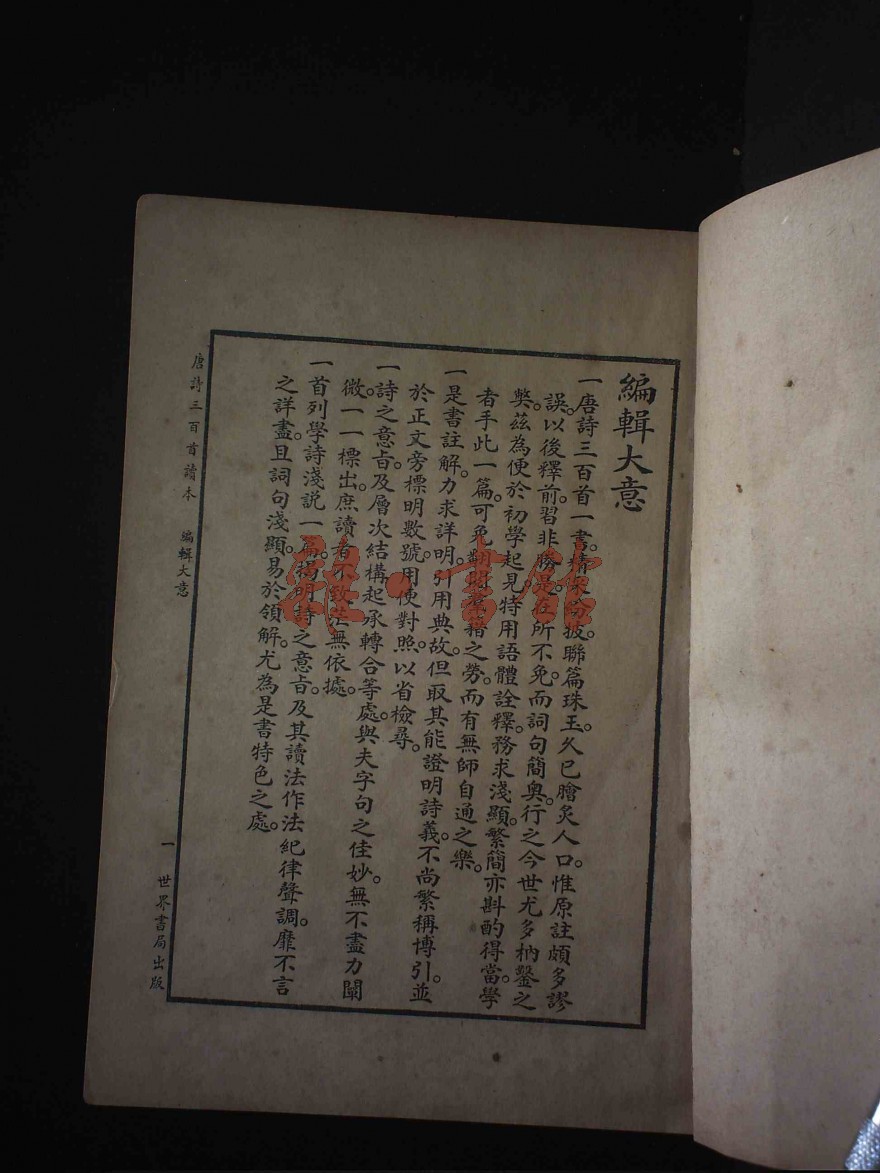 編輯大意
一唐詩三百首一書。精英分披。聯篇珠玉。久已膾炙人口。惟原註頗多謬
誤。以後釋前。習非勝是。在所不免。而詞句簡奧。行之今世。尤多枘鑿之
獘。茲為便於初學起見。特用語體詮釋。務求淺顯。繁簡亦斟酌得當。學
者手此一篇。可免翻閱羣籍之勞。而有無師自通之樂。
一是書註解。力求詳明。引用典故。但取其能證明詩義。不尚繁稱博引。並
於正文旁標明數號。用便對照。以省檢尋。
一詩之意旨。及層次結構起承轉合等處。與夫字句之佳妙。無不盡力闡
微。一一標出。庶讀者不致茫無依據。
一首列學詩淺説一篇。揭明詩之意旨。及其讀法作法紀律聲調。靡不言
之詳盡。且詞句淺顯。易於領解。尤為是書特色之處。
唐詩三百首讀本 編輯大意 一 世界書局出版
雅·書館